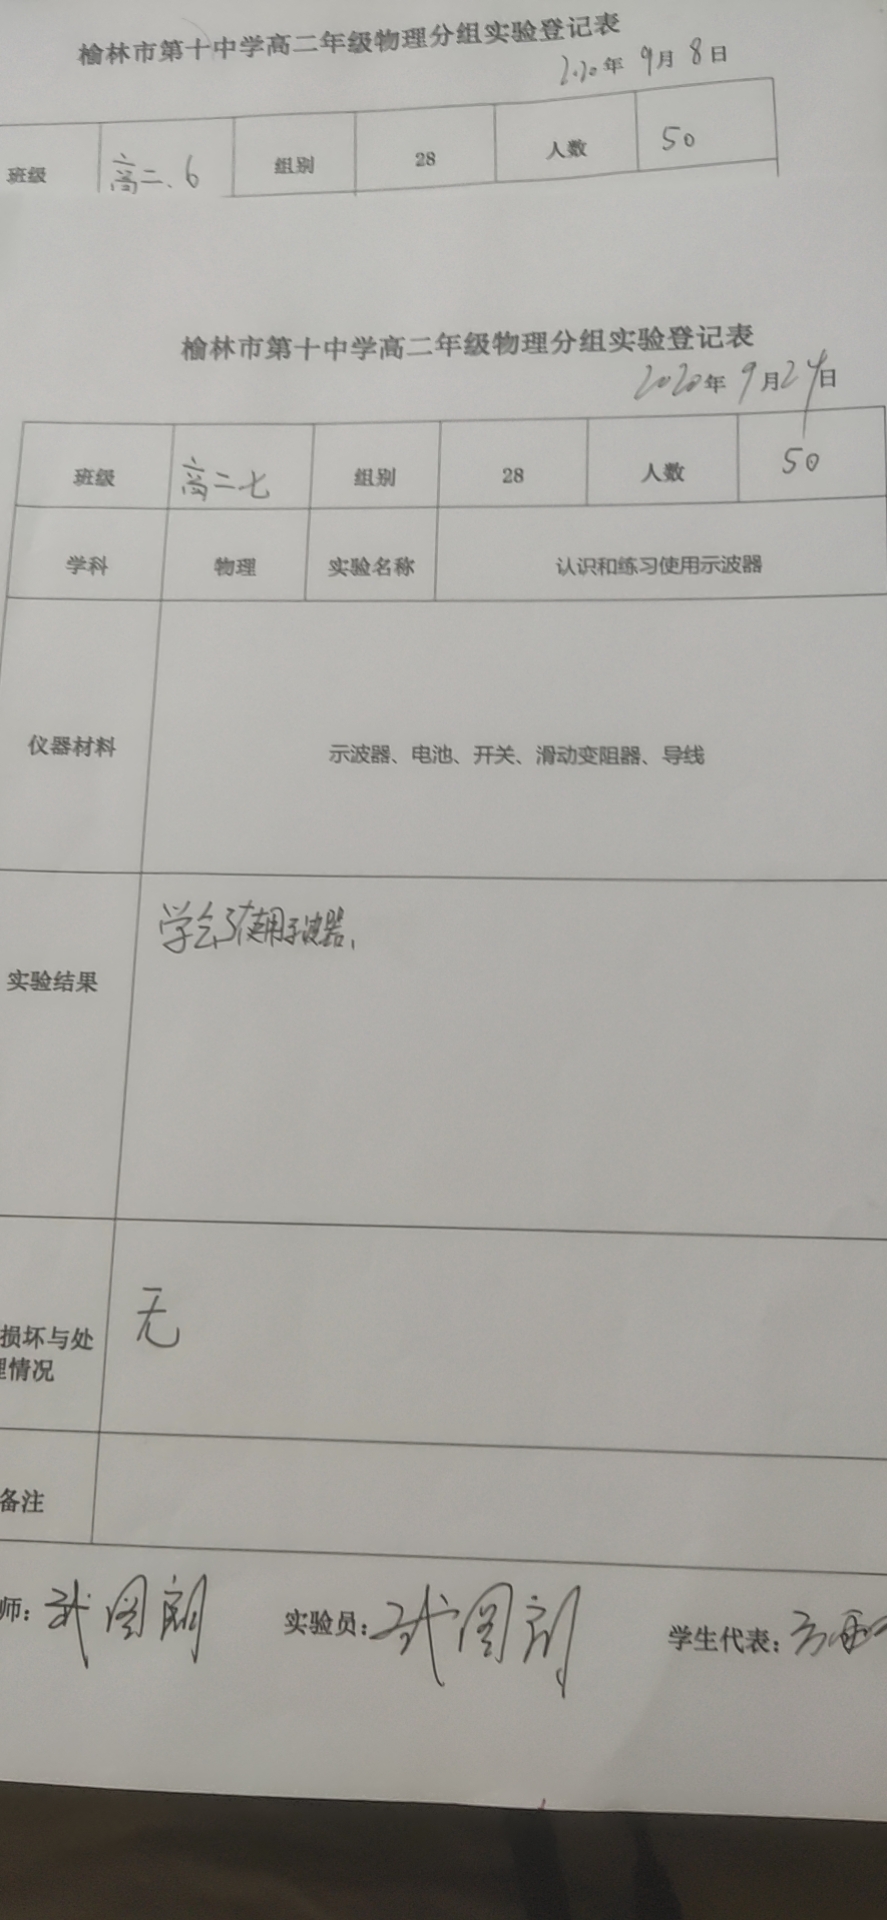 榆林市第十中学高二年级物理分组实验登记表
2020年 9月 8日
班级 高二、6 组别 28 人数 50
榆林市第十中学高二年级物理分组实验登记表
2020年 9月24日
班级 高二七 组别 28 人数 50
学科 物理 实验名称 认识和练习使用示波器
仪器材料 示波器、电池、开关、滑动变阻器、导线
学会了使用示波器、
实验结果
无
损坏与处
理情况
备注
师: 实验员: 学生代表: